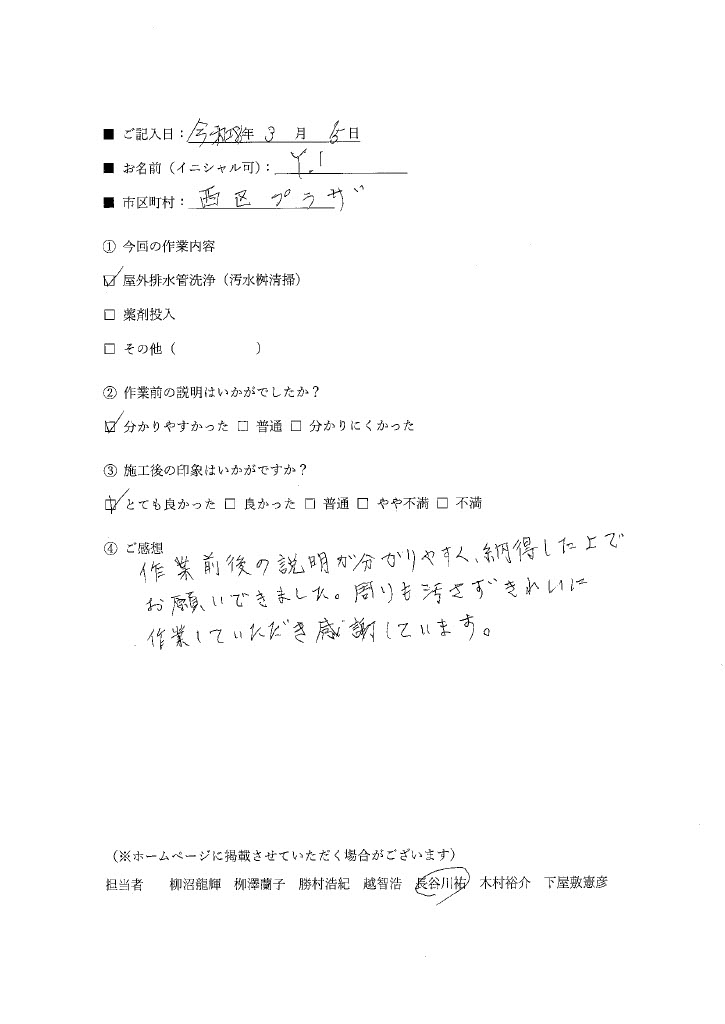 ■ ご記入日：令和8年 3 月 5日
■ お名前（イニシャル可）：Y.I
■ 市区町村：西区プラザ
① 今回の作業内容
☑ 屋外排水管洗浄（汚水桝清掃）
□ 薬剤投入
□ その他（　　　　　　）
② 作業前の説明はいかがでしたか？
☑ 分かりやすかった □ 普通 □ 分かりにくかった
③ 施工後の印象はいかがですか？
☑ とても良かった □ 良かった □ 普通 □ やや不満 □ 不満
④ ご感想
作業前後の説明が分かりやすく、納得した上で
お願いできました。周りも汚さずきれいに
作業していただき感謝しています。
（※ホームページに掲載させていただく場合がございます）
担当者　柳沼龍輝　栁澤蘭子　勝村浩紀　越智浩　長谷川祐　木村裕介　下屋敷憲彦